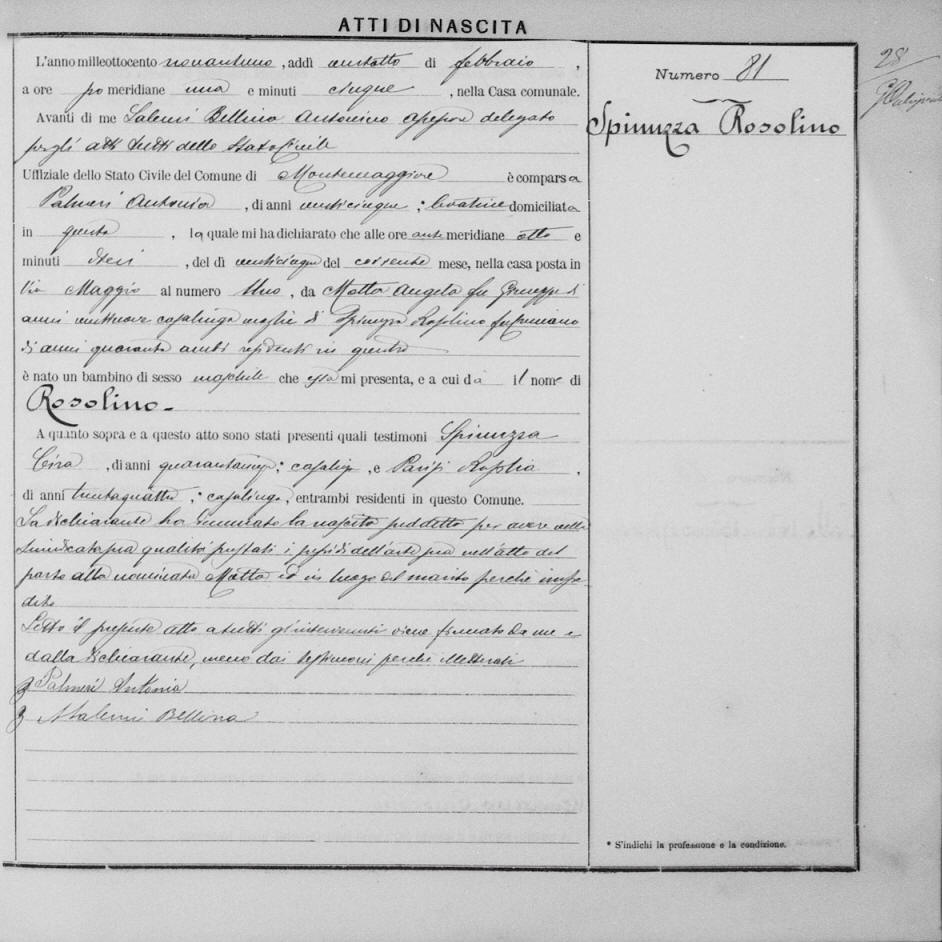 ATTI DI NASCITA
L'anno milleottocento novantuno, addì ventotto di febbraio,
a ore pomeridiane una e minuti cinque, nella Casa comunale.
Avanti di me Salemi Bellina Antonino assessore delegato
per gli atti tutti dello Stato Civile
Uffiziale dello Stato Civile del Comune di Montemaggiore è comparsa
Palmeri Antonia, di anni venticinque; levatrice domiciliata
in questo, la quale mi ha dichiarato che alle ore antimeridiane otto e
minuti dieci, del dì venticinque del corrente mese, nella casa posta in
Via Maggio al numero Uno, da Matta Angela fu Giuseppe di
anni ventinove casalinga moglie di Spinuzza Rosolino fu
di anni quaranta ambi residenti in questo
è nato un bambino di sesso maschile che essa mi presenta, e a cui dà il nome di
Rosolino-
A quanto sopra e a questo atto sono stati presenti quali testimoni Spinuzza
Cira, di anni quarantacinque; casalinga, e Parisi Rosalia,
di anni trentaquattro; casalinga, entrambi residenti in questo Comune.
La dichiarante ha denunciato la nascita suddetta per avere nella
sindicata sua qualità prestati i presidi dell'arte sua nell'atto del
parto alla nominata Matta ed in luogo del marito perché impe-
dito
Letto il presente atto a tutti gl'intervenuti viene firmato da me e
dalla dichiarante, meno dai testimoni perché illetterati
Palmeri Antonia
A Salemi Bellina
Numero 81
Spinuzza Rosolino
28
* S'indichi la professione e la condizione.